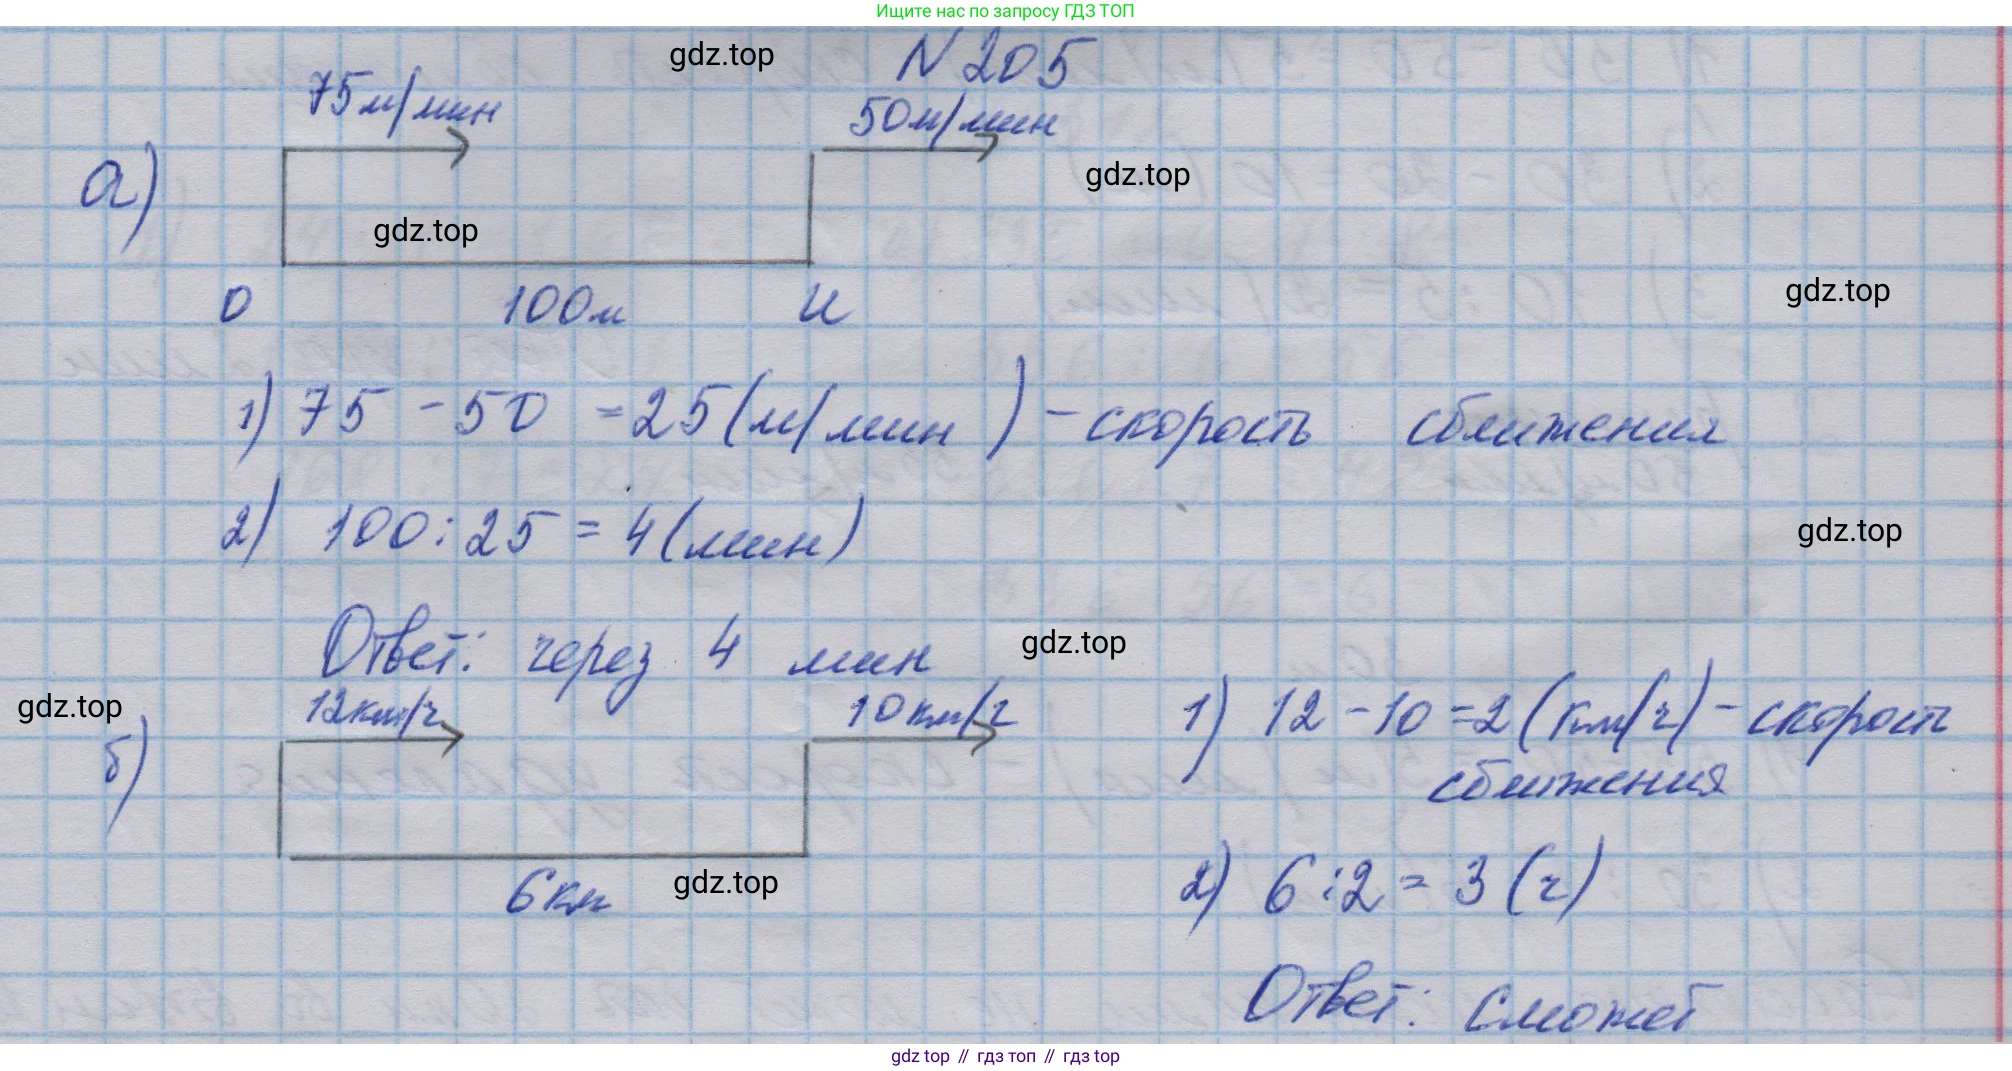 Ищите нас по запросу ГДЗ ТОП
gdz.top
N 205
75м/мин
50м/мин
а)
gdz.top
gdz.top
О 100м И
gdz.top
1) 75 - 50 = 25 (м/мин) - скорость сближения
2) 100 : 25 = 4 (мин)
gdz.top
Ответ: через 4 мин
gdz.top
gdz.top
б)
12км/ч
10км/ч
6км
gdz.top
1) 12 - 10 = 2 (км/ч) - скорость
сближения
2) 6 : 2 = 3 (ч)
Ответ: сможет
gdz top // гдз топ // гдз top